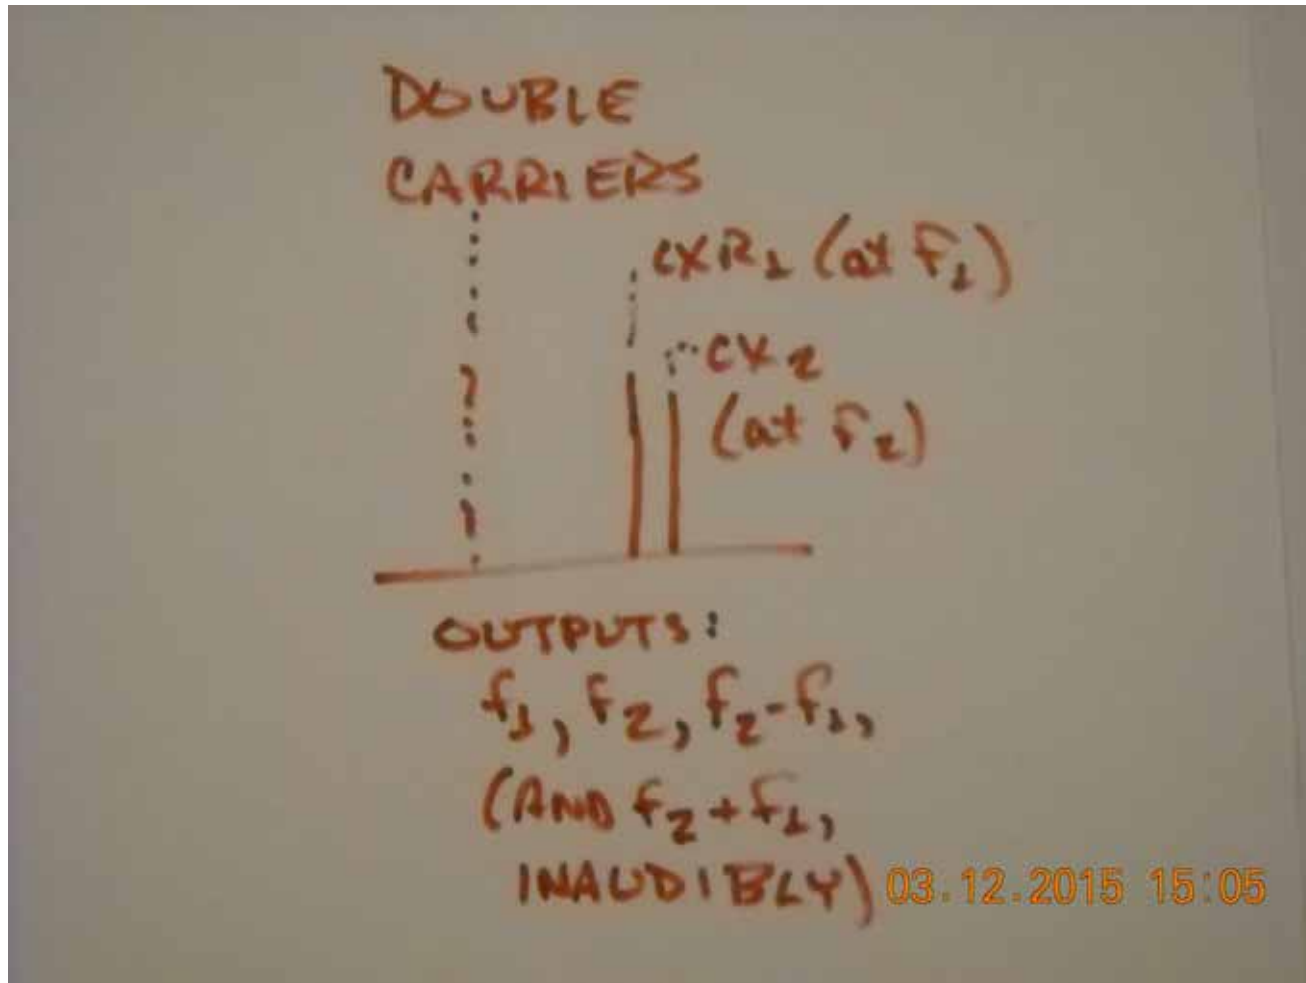 DOUBLE
CARRIERS
CXR1 (at F1)
CX2
(at F2)
OUTPUTS:
f1, F2, f2-f1,
(AND f2+f1,
INAUDIBLY)
03.12.2015 15:05